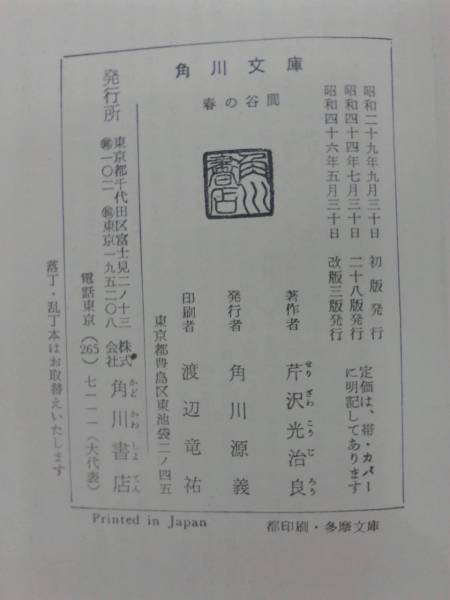 角川文庫
春の谷間
角川書店
昭和二十九年九月三十日 初版発行
昭和四十四年七月三十日 二十八版発行
昭和四十六年五月三十日 改版三版発行
定価は、帯・カバー
に明記してあります
著作者 芹沢光治良
せり ざわ こう じ ろう
発行者 角川源義
印刷者 渡辺竜祐
東京都豊島区東池袋二ノ四五
発行所
株式会社 角川書店
かど かわ しょ てん
東京都千代田区富士見二ノ十三
郵一〇二 振東京一九五二〇八
電話東京(265)七一一一(大代表)
落丁・乱丁本はお取替えいたします
Printed in Japan
都印刷・多摩文庫